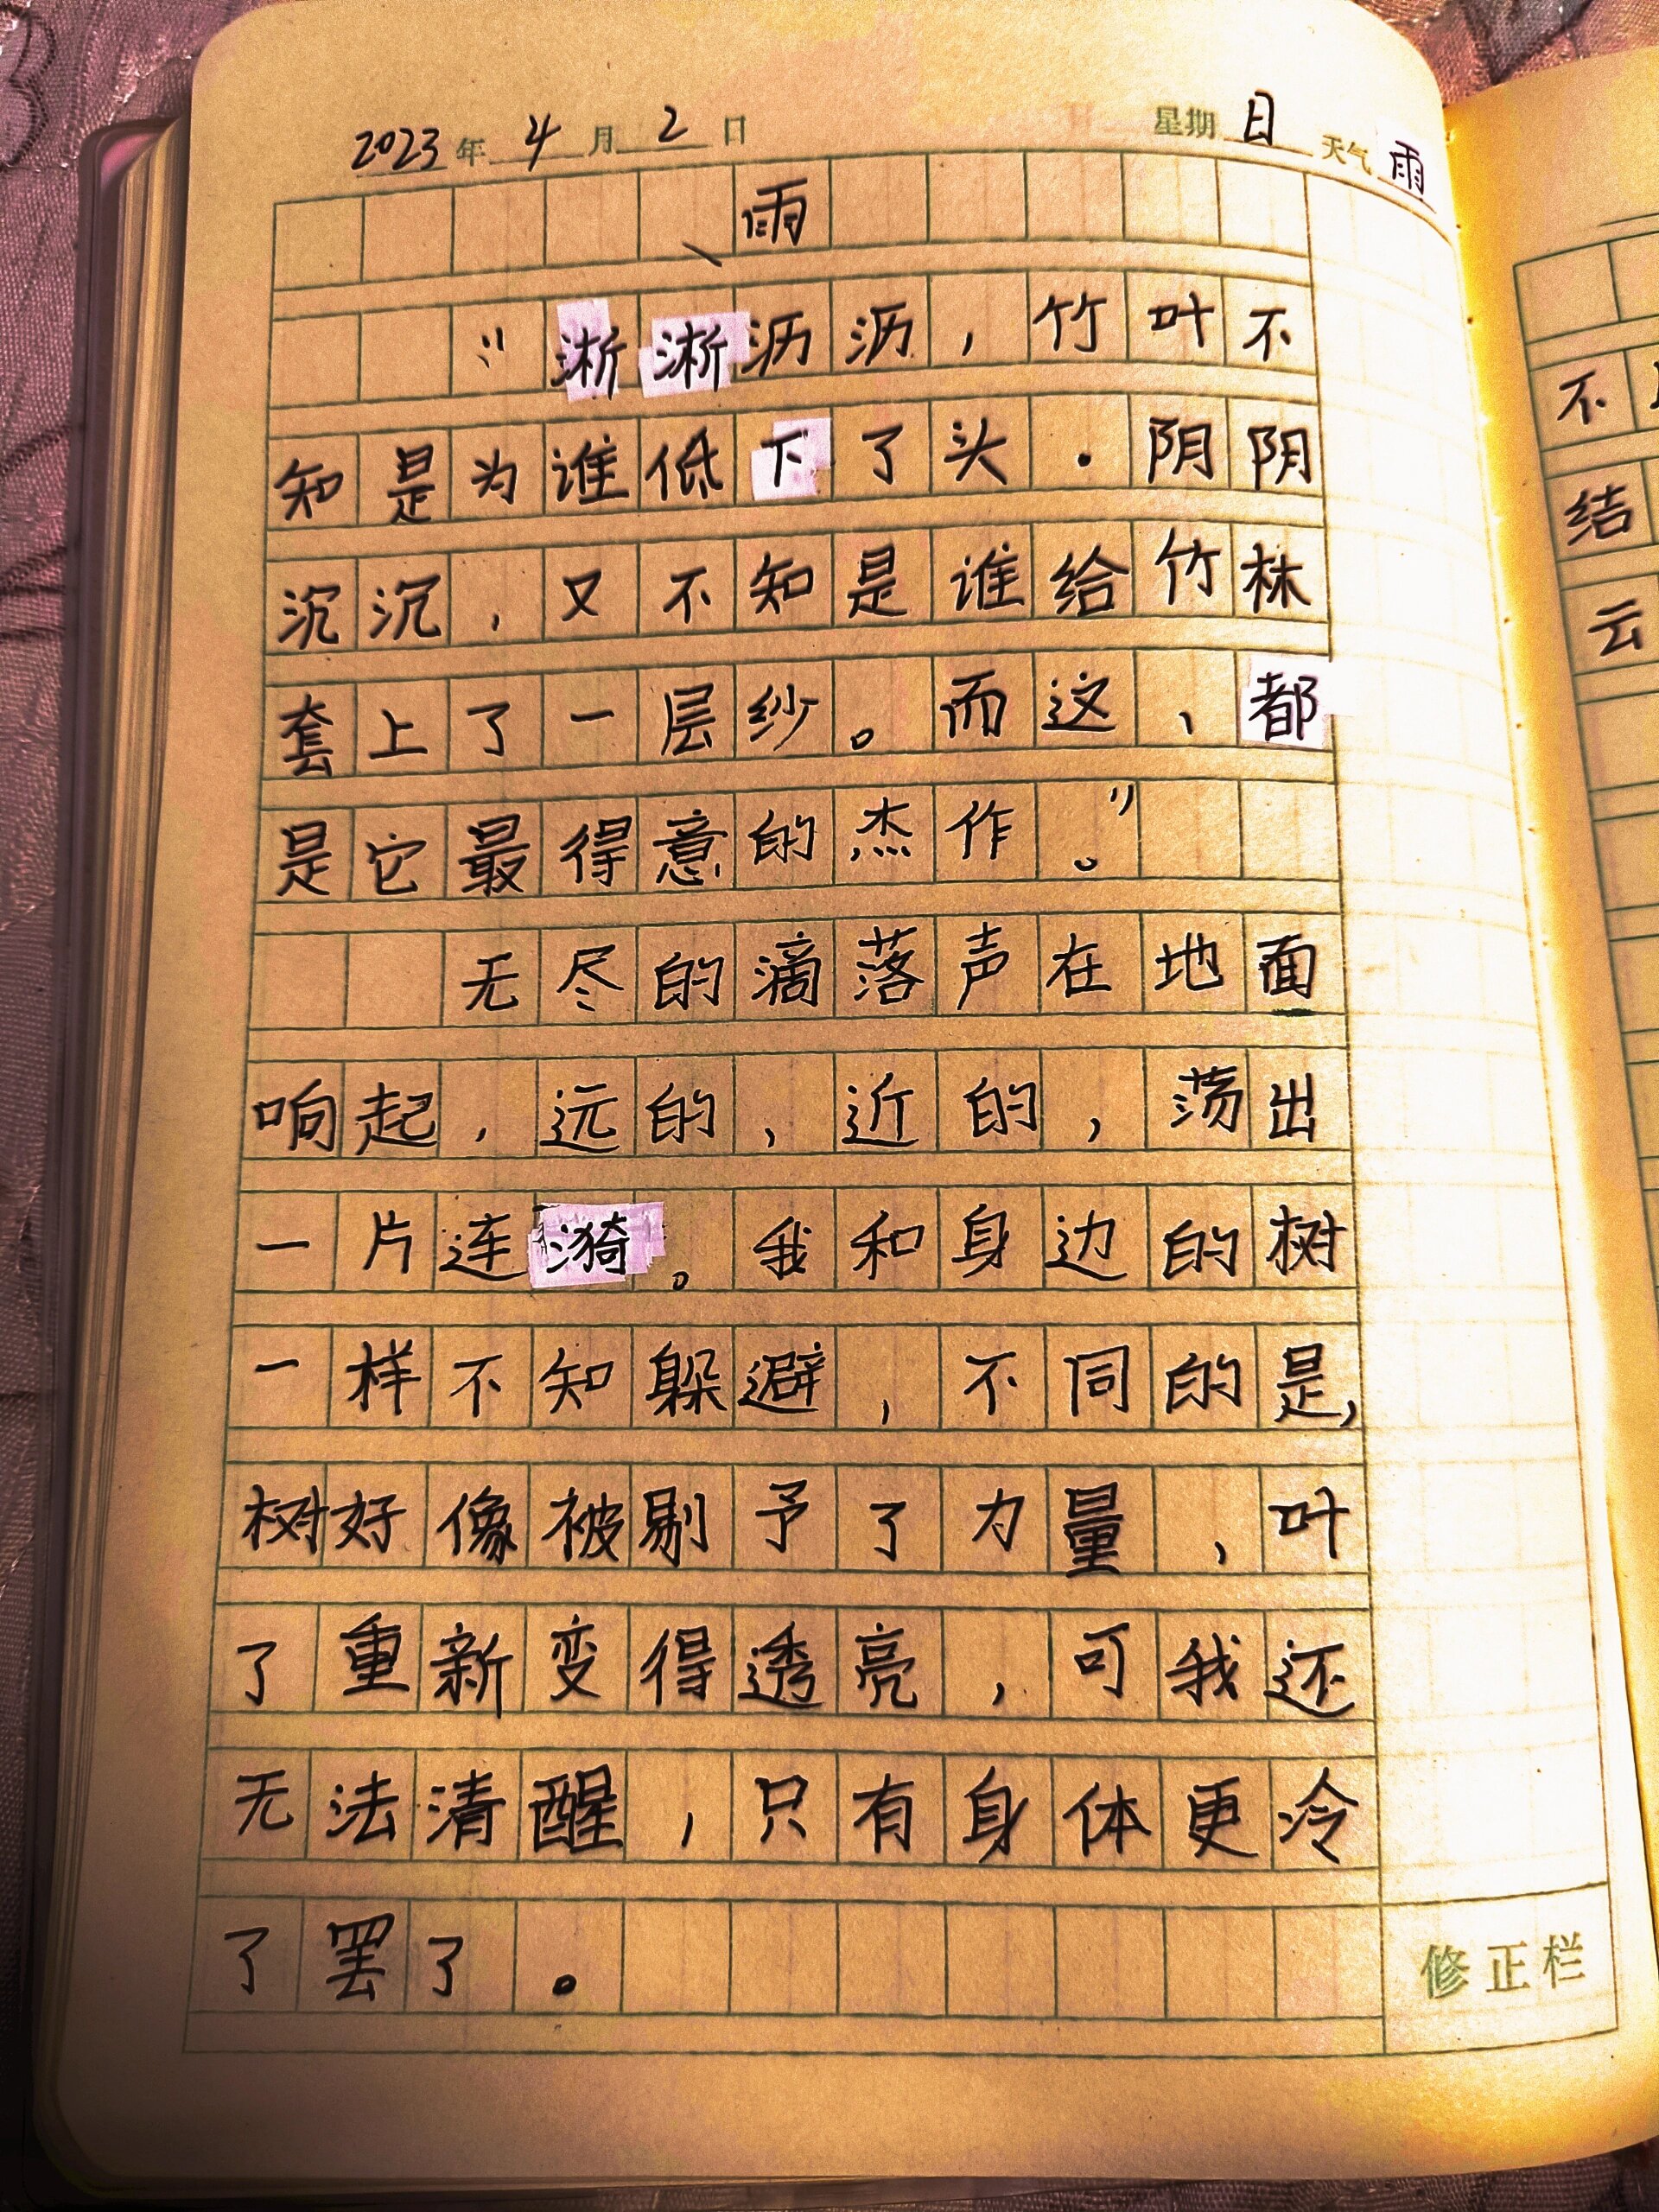 2023年4月2日 星期日 天气雨
雨
“淅淅沥沥，竹叶不
知是为谁低下了头.阴阴
沉沉，又不知是谁给竹林
套上了一层纱。而这、都
是它最得意的杰作。”
无尽的滴落声在地面
响起，远的，近的，荡出
一片连漪。我和身边的树
一样不知躲避，不同的是，
树好像被剔予了力量，叶
了重新变得透亮，可我还
无法清醒，只有身体更冷
了罢了。
修正栏
不
结
云